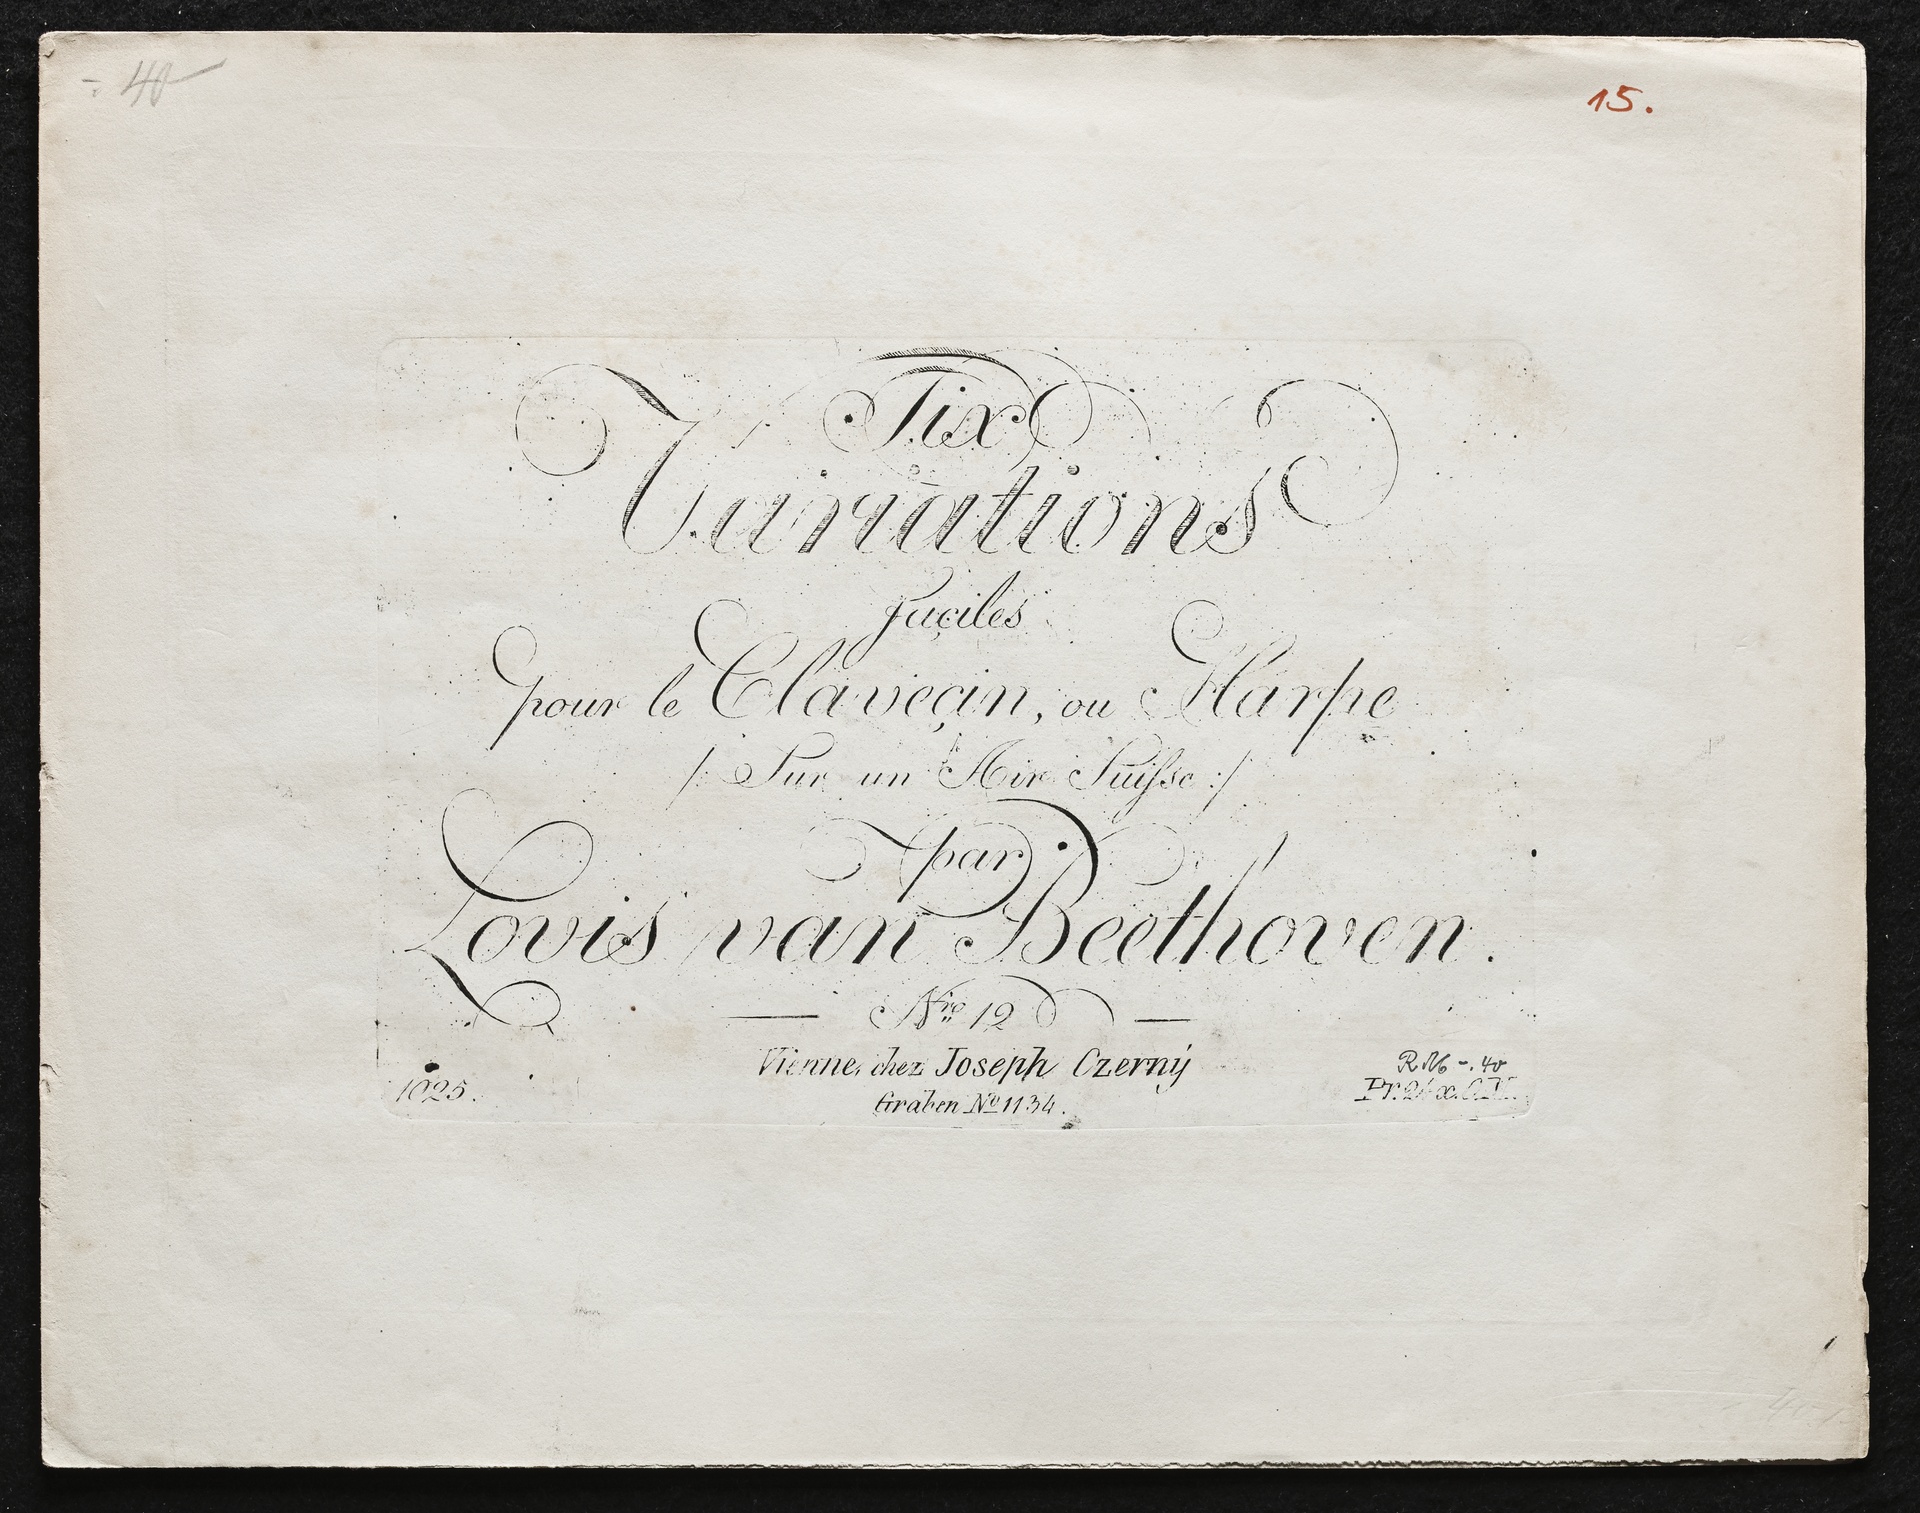 - 40
15.
Six
Variations
façiles
pour le Claveçin, ou Harpe
/: Sur un Air Suisse :/
par
Lovis van Beethoven.
Nro 12
Vienne, chez Joseph Czerný
Graben No 1134.
1025.
RM -. 40